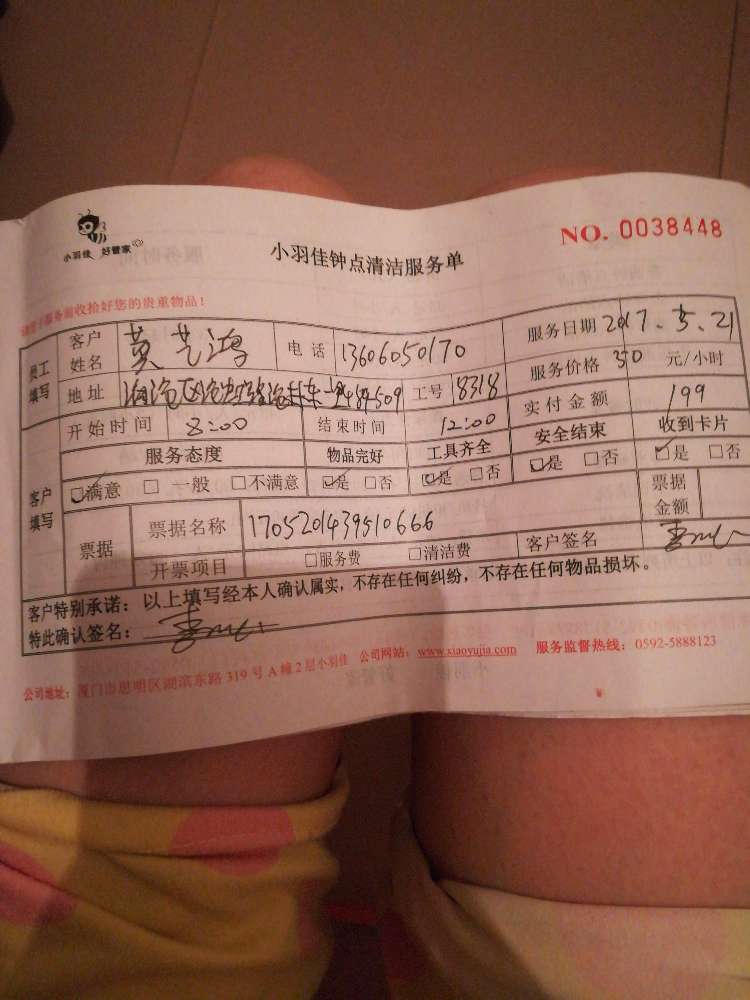 小羽佳 好管家
小羽佳钟点清洁服务单
NO. 0038448
服务前收拾好您的贵重物品!
员工填写 客户姓名 黄艺鸿 电话 13606050170 服务日期 2017.5.21
地址 海沧区 工号 8318 服务价格 50 元/小时
开始时间 8:00 结束时间 12:00 实付金额 199
客户填写 服务态度 物品完好 工具齐全 安全结束 收到卡片
☑满意 □一般 □不满意 ☑是 □否 ☑是 □否 ☑是 □否 ☑是 □否
票据 票据名称 1705201439510666 票据金额
开票项目 □服务费 □清洁费 客户签名
客户特别承诺:以上填写经本人确认属实,不存在任何纠纷,不存在任何物品损坏。
特此确认签名:
公司地址:厦门市思明区湖滨东路319号A幢2层小羽佳 公司网站:www.xiaoyujia.com 服务监督热线:0592-5888123